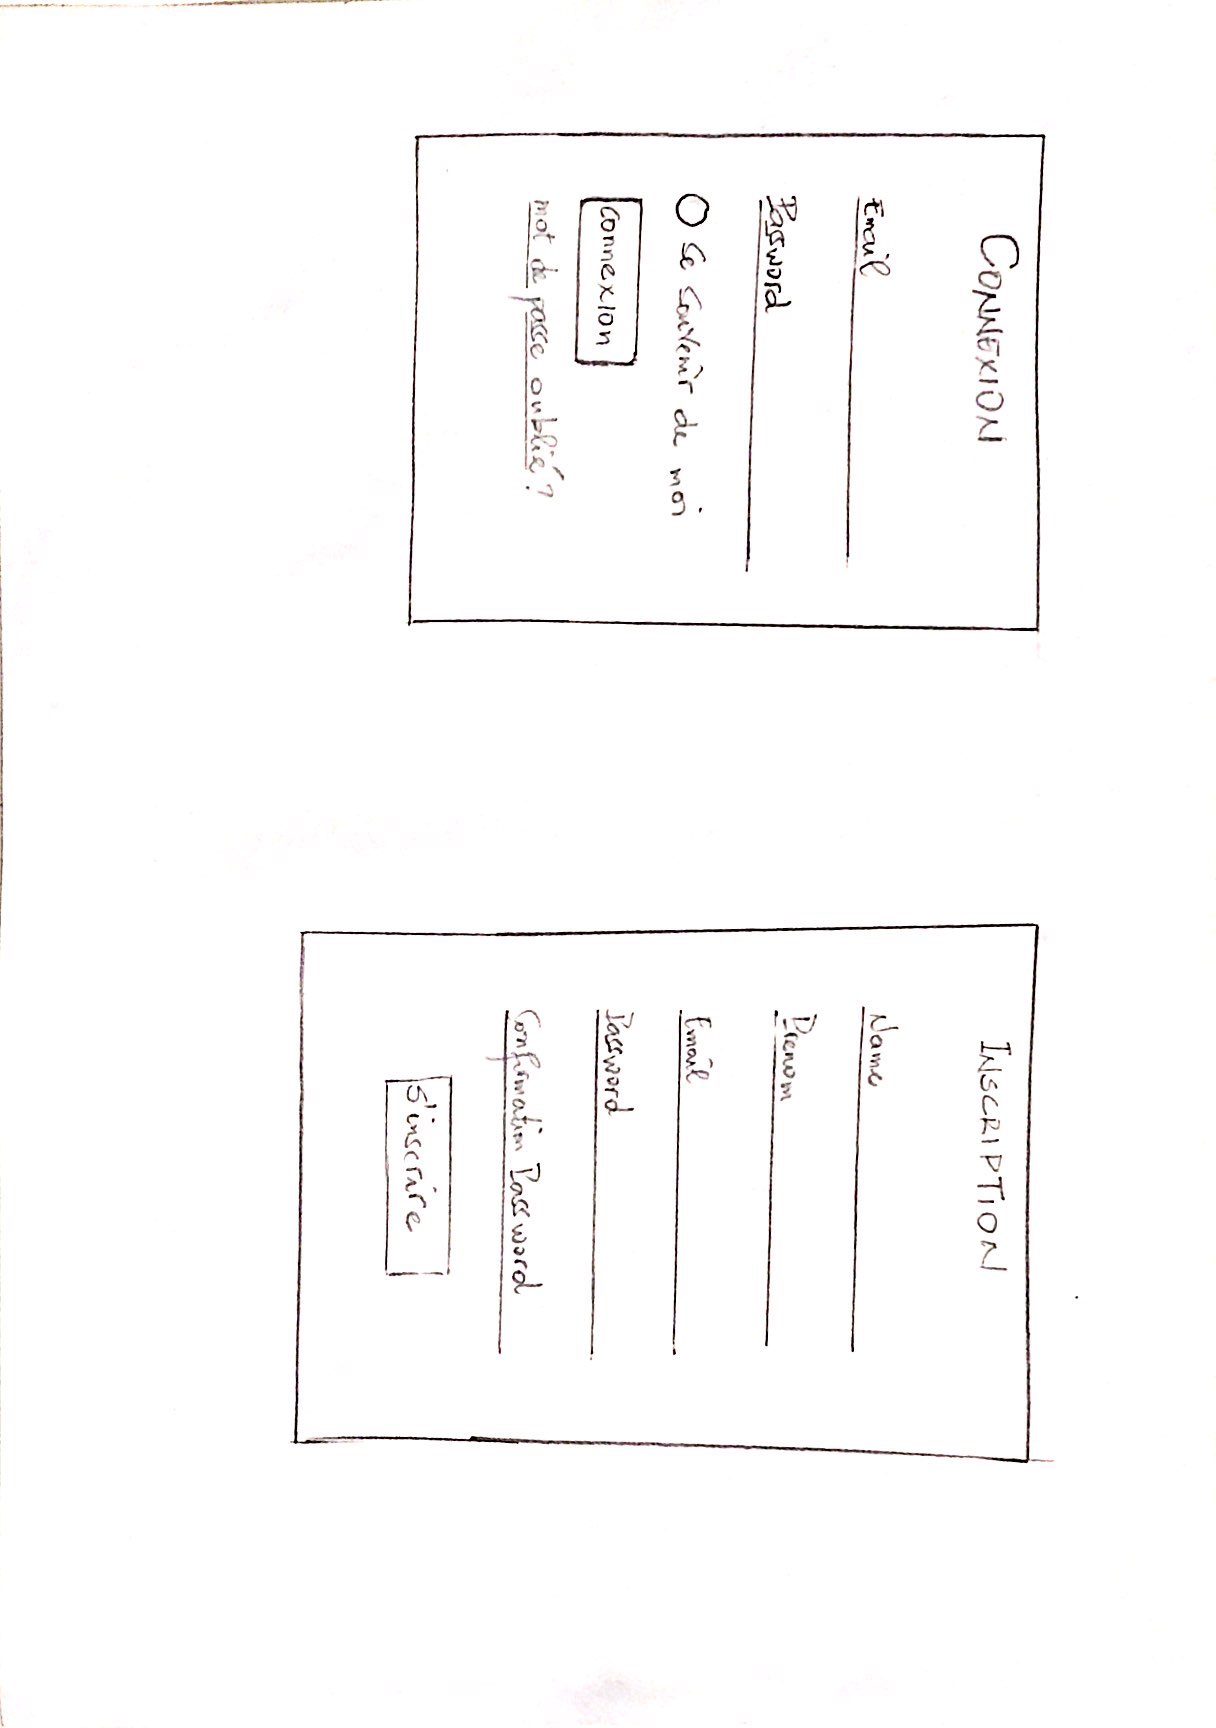 CONNEXION
Email
Password
Se souvenir de moi
Connexion
mot de passe oublié ?
INSCRIPTION
Name
Prenom
Email
Password
Confirmation Password
S'inscrire